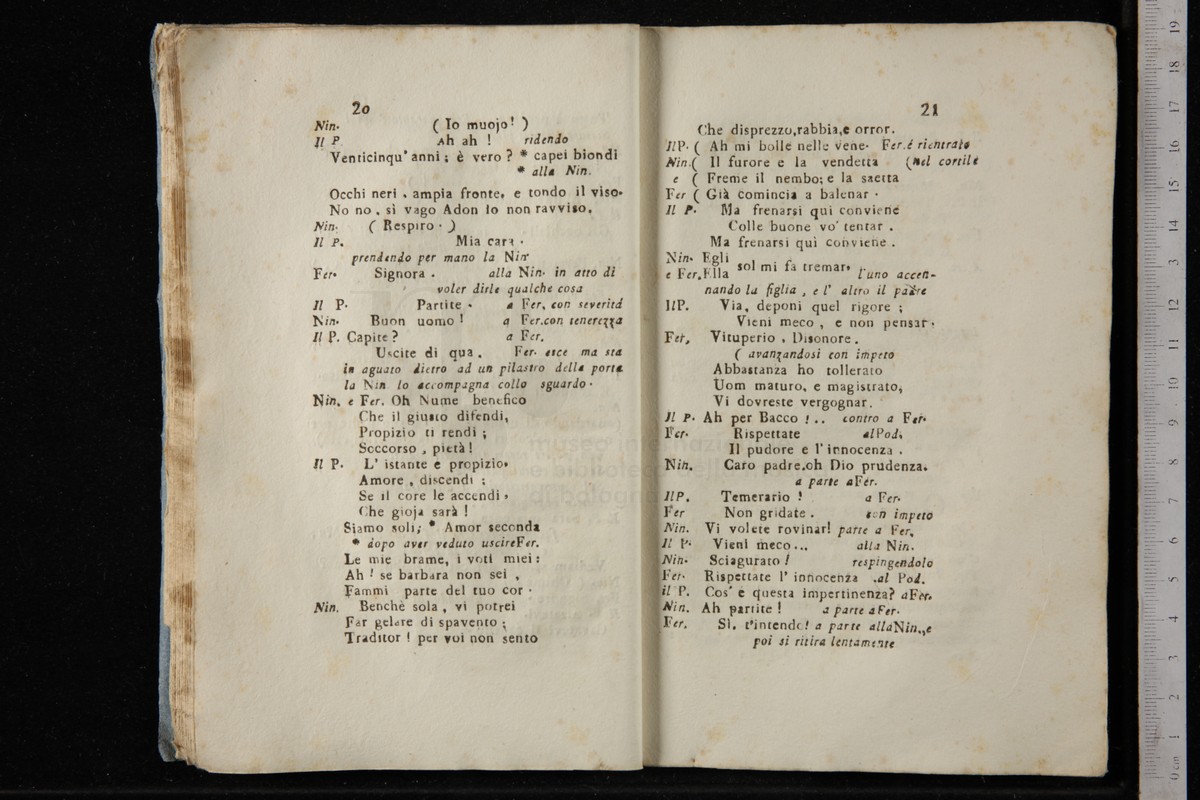 20
Nin. ( Io muojo! )
Il P. Ah ah ! ridendo
Venticinqu' anni ; è vero ? * capei biondi
* alla Nin.
Occhi neri , ampia fronte, e tondo il viso.
No no , sì vago Adon io non ravviso.
Nin. ( Respiro . )
Il P. Mia cara .
prendendo per mano la Nin.
Fer. Signora . alla Nin. in atto di
voler dirle qualche cosa
Il P. Partite . a Fer. con severità
Nin. Buon uomo ! a Fer.con tenerezza
Il P. Capite ? a Fer.
Uscite di qua . Fer. esce ma sta
in aguato dietro ad un pilastro della porta
la Nin lo accompagna collo sguardo .
Nin. e Fer. Oh Nume benefico
Che il giusto difendi,
Propizio ti rendi ;
Soccorso , pietà !
Il P. L' istante e propizio.
Amore , discendi ;
Se il core le accendi ,
Che gioja sarà !
Siamo soli; * Amor seconda
* dopo aver veduto uscireFer.
Le mie brame, i voti miei :
Ah ! se barbara non sei ,
Fammi parte del tuo cor .
Nin. Benchè sola , vi potrei
Far gelare di spavento ;
Traditor ! per voi non sento
21
Che disprezzo,rabbia,e orror.
IlP. ( Ah mi bolle nelle vene. Fer.é rientrato
Nin.( Il furore e la vendetta (nel cortile
e ( Freme il nembo; e la saetta
Fer ( Già comincia a balenar .
Il P. Ma frenarsi qui conviene
Colle buone vo' tentar .
Ma frenarsi quì conviene .
Nin. Egli
e Fer.Ella sol mi fa tremar. l'uno accen-
nando la figlia , e l' altro il padre
IlP. Via, deponi quel rigore ;
Vieni meco , e non pensar.
Fer. Vituperio . Disonore .
( avanzandosi con impeto
Abbastanza ho tollerato
Uom maturo, e magistrato,
Vi dovreste vergognar.
Il P. Ah per Bacco ! .. contro a Fer.
Fer. Rispettate alPod.
Il pudore e l' innocenza .
Nin. Caro padre.oh Dio prudenza.
a parte aFer.
IlP. Temerario ! a Fer.
Fer Non gridate . con impeto
Nin. Vi volete rovinar! parte a Fer.
Il P. Vieni meco... alla Nin.
Nin. Sciagurato ! respingendolo
Fer. Rispettate l' innocenza .al Pod.
il P. Cos' e questa impertinenza? aFer.
Nin. Ah partite ! a parte aFer.
Fer. Sì, t'intendo! a parte allaNin.,e
poi si ritira lentamente
museo inter
e biblioteca della
di bologna
0 cm 1 2 3 4 5 6 7 8 9 10 11 12 13 14 15 16 17 18 19